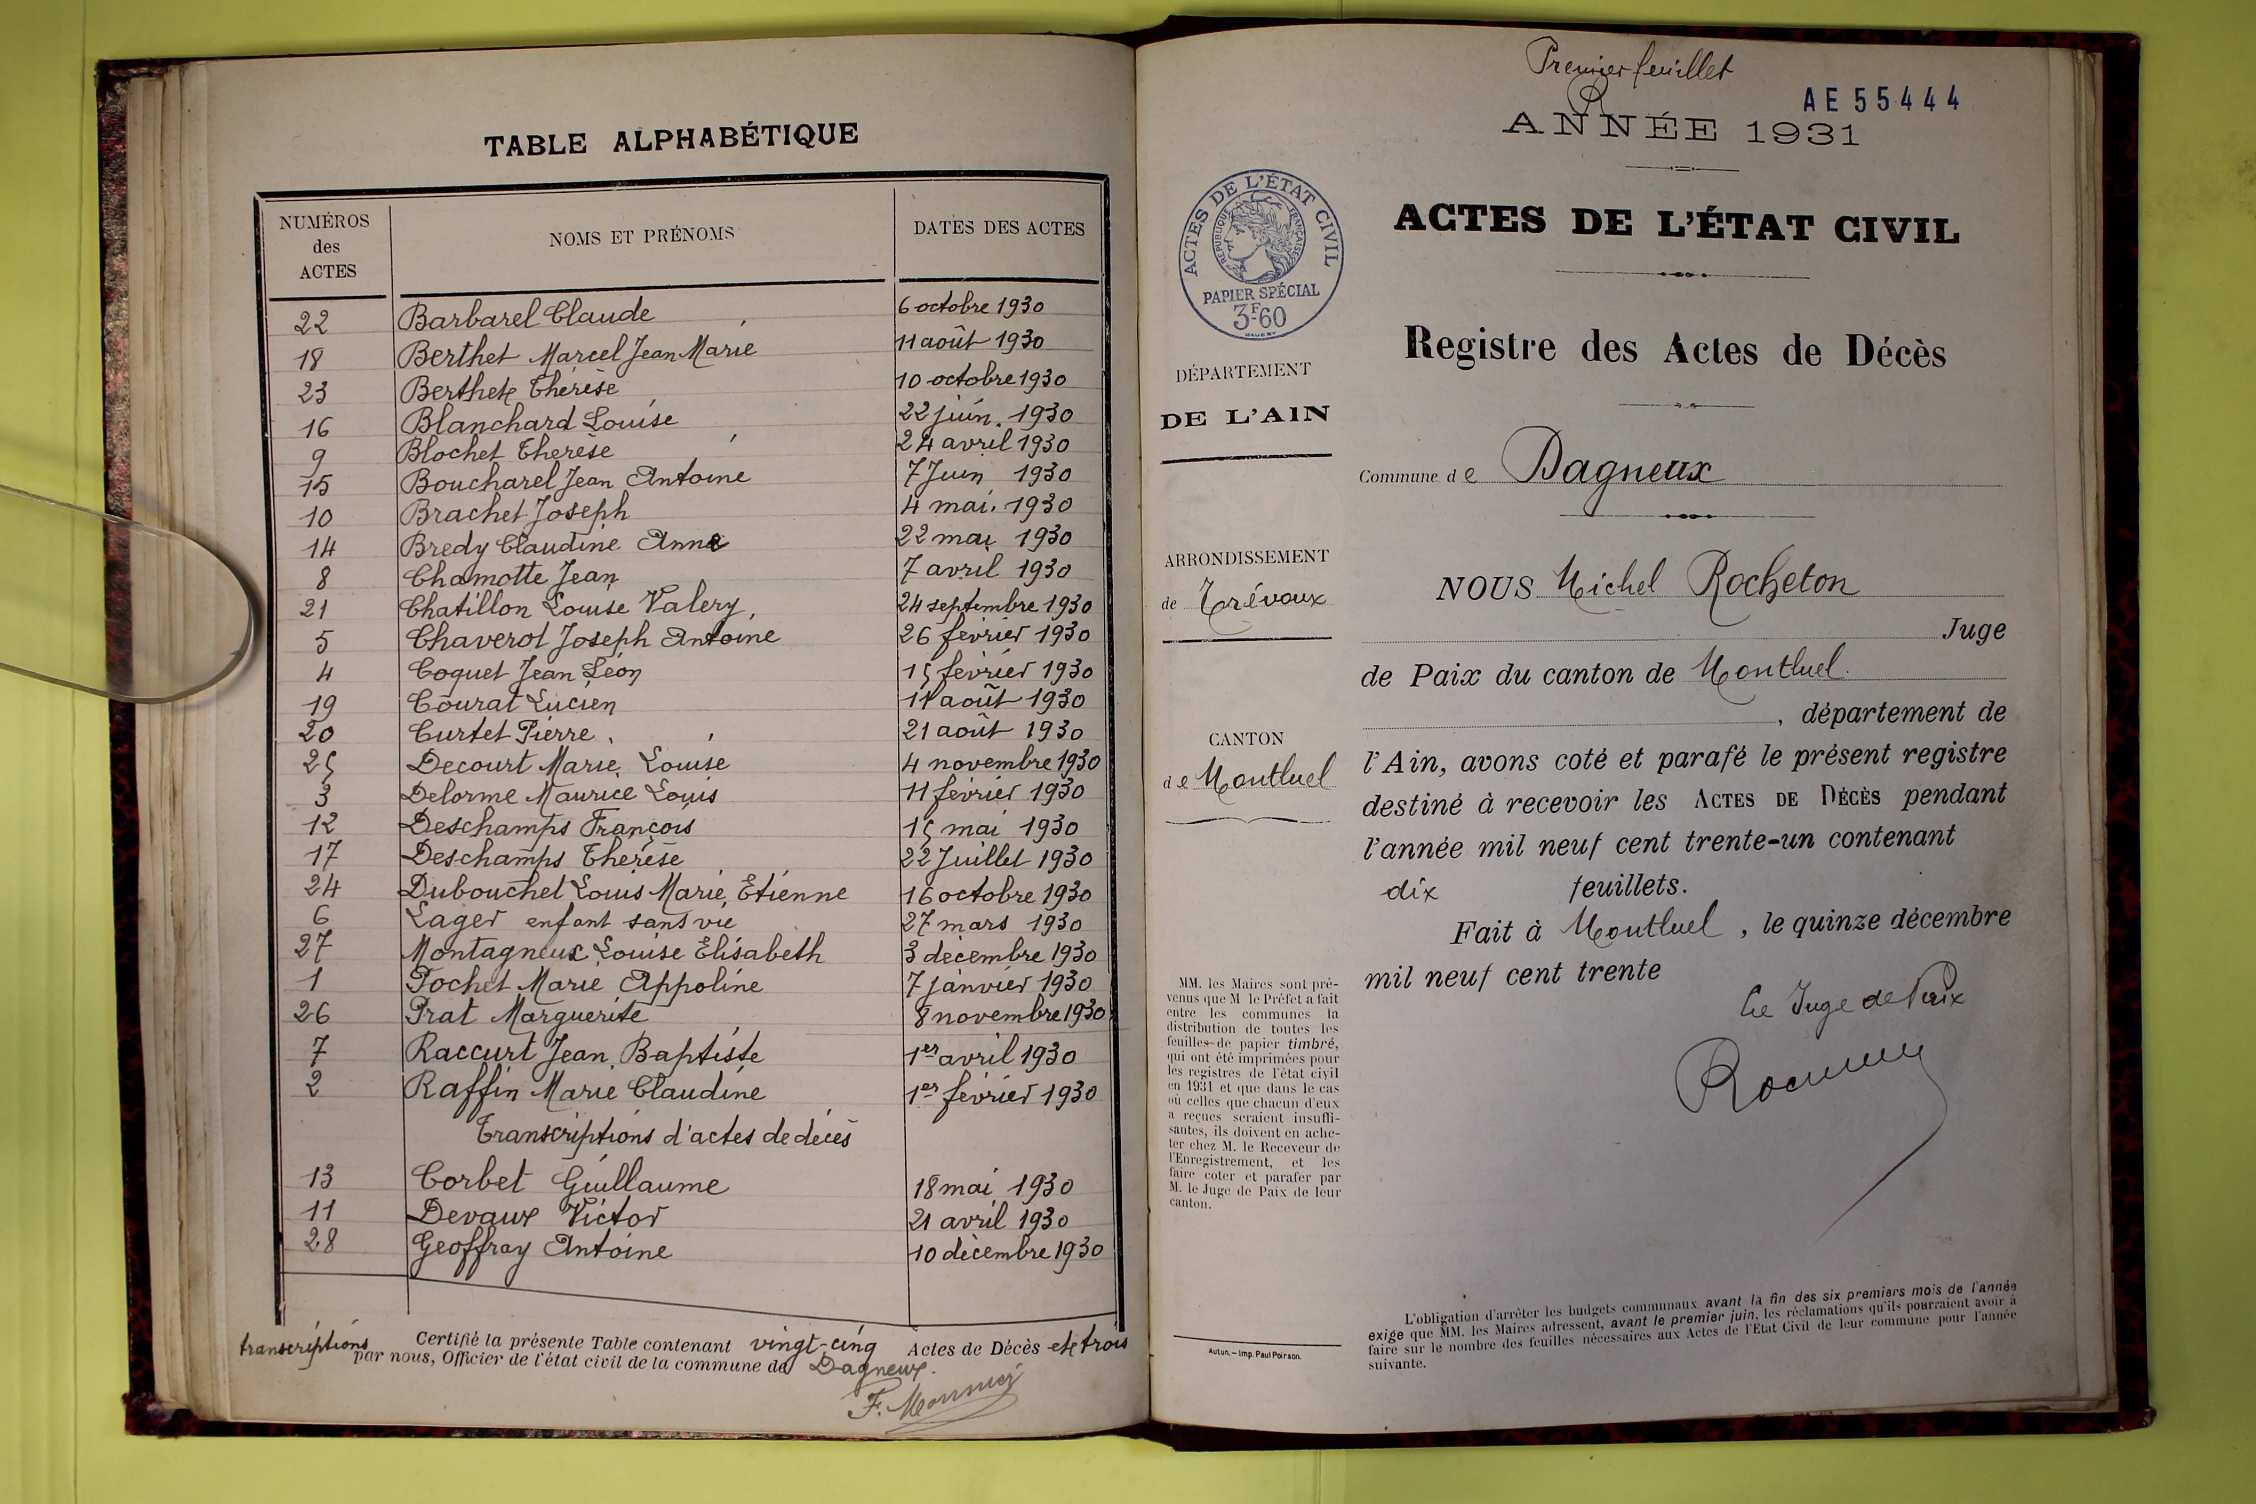 TABLE ALPHABÉTIQUE
NUMÉROS des ACTES NOMS ET PRÉNOMS DATES DES ACTES
22 Barbarel Claude 6 octobre 1930
18 Berthet Marcel Jean Marie 11 août 1930
23 Berthet Thérèse 10 octobre 1930
16 Blanchard Louise 22 juin. 1930
9 Blochet Therèse 24 avril 1930
15 Boucharel Jean Antoine 7 Juin 1930
10 Brachet Joseph 4 mai. 1930
14 Bredy Claudine Anne 22 mai 1930
8 Chamotte Jean 7 avril 1930
21 Chatillon Louise Valery, 24 septembre 1930
5 Chaverot Joseph Antoine 26 février 1930
4 Coquet Jean Léon 15 février 1930
19 Courat Lucien 11 août 1930
20 Curtet Pierre. 21 août 1930
25 Decourt Marie Louise 4 novembre 1930
3 Delorme Maurice Louis 11 février 1930
12 Deschamps François 15 mai 1930
17 Deschamps Therèse 22 Juillet 1930
24 Dubouchet Louis Marie Etienne 16 octobre 1930
6 Lager enfant sans vie 27 mars 1930
27 Montagneux Louise Elisabeth 3 décembre 1930
1 Pochet Marie Appoline 7 janvier 1930
26 Prat Marguerite 8 novembre 1930
7 Raccurt Jean Baptiste 1er avril 1930
2 Raffin Marie Claudine 1er février 1930
Transcriptions d'actes de décès
13 Corbet Guillaume 18 mai 1930
11 Devaux Victor 21 avril 1930
28 Geoffray Antoine 10 décembre 1930
Certifié la présente Table contenant vingt-cinq Actes de Décès et trois
transcriptions par nous, Officier de l'état civil de la commune de Dagneux.
Premier feuillet
AE 55444
ANNÉE 1931
ACTES DE L'ÉTAT CIVIL
RÉPUBLIQUE FRANÇAISE
PAPIER SPÉCIAL
3F60
ACTES DE L'ÉTAT CIVIL
Registre des Actes de Décès
DÉPARTEMENT
DE L'AIN
Commune de Dagneux
ARRONDISSEMENT
de Trévoux
NOUS Michel Rocheton
Juge
de Paix du canton de Montluel.
, département de
CANTON
de Montluel
l'Ain, avons coté et parafé le présent registre
destiné à recevoir les ACTES DE DÉCÈS pendant
l'année mil neuf cent trente-un contenant
dix feuillets.
Fait à Montluel, le quinze décembre
mil neuf cent trente
Le Juge de Paix
MM. les Maires sont pré-
venus que M le Préfet a fait
entre les communes la
distribution de toutes les
feuilles de papier timbré,
qui ont été imprimées pour
les registres de l'état civil
en 1931 et que dans le cas
où celles que chacun d'eux
a reçues seraient insuffi-
santes, ils doivent en ache-
ter chez M. le Receveur de
l'Enregistrement, et les
faire coter et parafer par
M. le Juge de Paix de leur
canton.
Autun. — Imp. Paul Poirson.
L'obligation d'arrêter les budgets communaux avant la fin des six premiers mois de l'année
exige que MM. les Maires adressent, avant le premier juin, les réclamations qu'ils pourraient avoir à
faire sur le nombre des feuilles nécessaires aux Actes de l'Etat Civil de leur commune pour l'année
suivante.